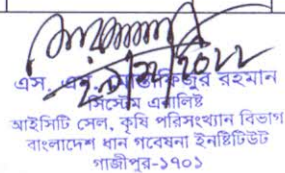 এস, এম, মোস্তাফিজুর রহমান
সিস্টেম এনালিষ্ট
আইসিটি সেল, কৃষি পরিসংখ্যান বিভাগ
বাংলাদেশ ধান গবেষনা ইনষ্টিটিউট
গাজীপুর-১৭০১